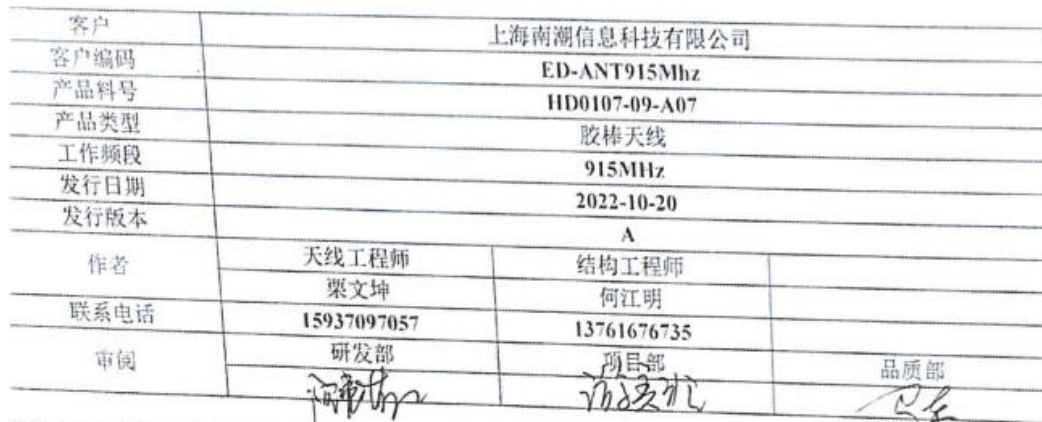 客户 上海南潮信息科技有限公司
客户编码 ED-ANT915Mhz
产品料号 HD0107-09-A07
产品类型 胶棒天线
工作频段 915MHz
发行日期 2022-10-20
发行版本 A
作者 天线工程师 结构工程师
栗文坤 何江明
联系电话 15937097057 13761676735
审阅 研发部 项目部 品质部